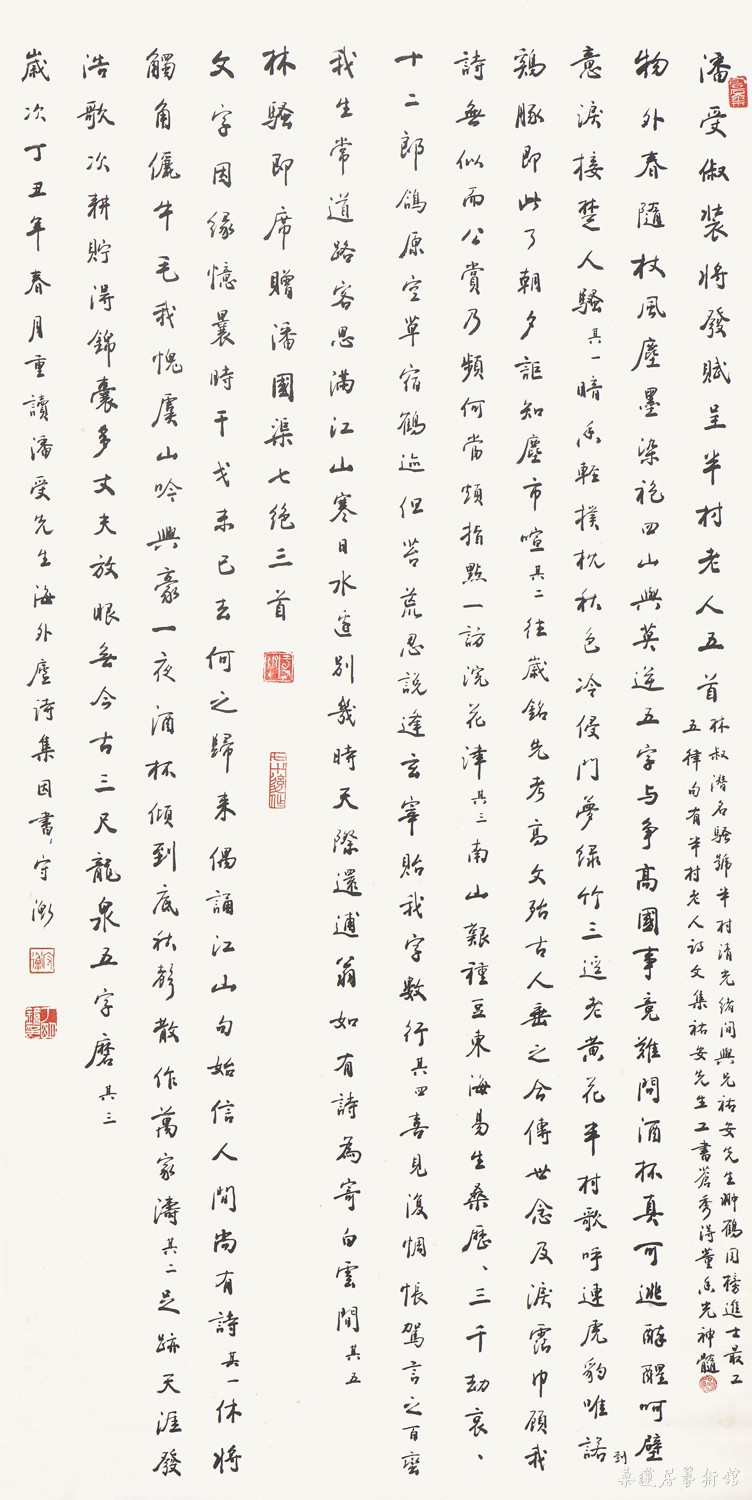 潘受俶裝將發賦呈半村老人五首
林叔潛名騷號半村清光緒間與兄祐安先生翀鶴同榜進士最工
五律句有半村老人詩文集祐安先生工書蒼秀得董香光神髓
物外春隨杖風塵墨染袍四山與莫逆五字与爭高國事竟難問酒杯真可逃醉醒呵壁
意淚接楚人騷其一暗香輕撲枕秋色冷侵門夢綠竹三逕老黃花半村歌呼連虎豹唯諾到
鷄豚即此了朝夕詎知塵市喧其二往歲銘先考高文殆古人垂之合傳世念及淚霑巾顧我
詩無似而公賞乃頻何當煩指點一訪浣花津其三南山艱種豆東海易生桑歷、三千劫哀、
十二郎鴒原空草宿鶴迹但苔荒忍說逢玄宰貽我字數行其四喜見復惆悵駕言之百蠻
我生常道路客思滿江山寒日水邊別幾時天際還逋翁如有詩為寄白雲間其五
林騷即席贈潘國渠七絕三首
文字因緣憶曩時干戈未已去何之歸來偶誦江山句始信人間尚有詩其一休將
觸角儷牛毛我愧虞山吟興豪一夜酒杯傾到底秋聲散作萬家濤其二足跡天涯發
浩歌次耕貯得錦囊多丈夫放眼無今古三尺龍泉五字磨其三
歲次丁丑年春月重讀潘受先生海外廬詩集因書、守漸
桑蓮居藝術館